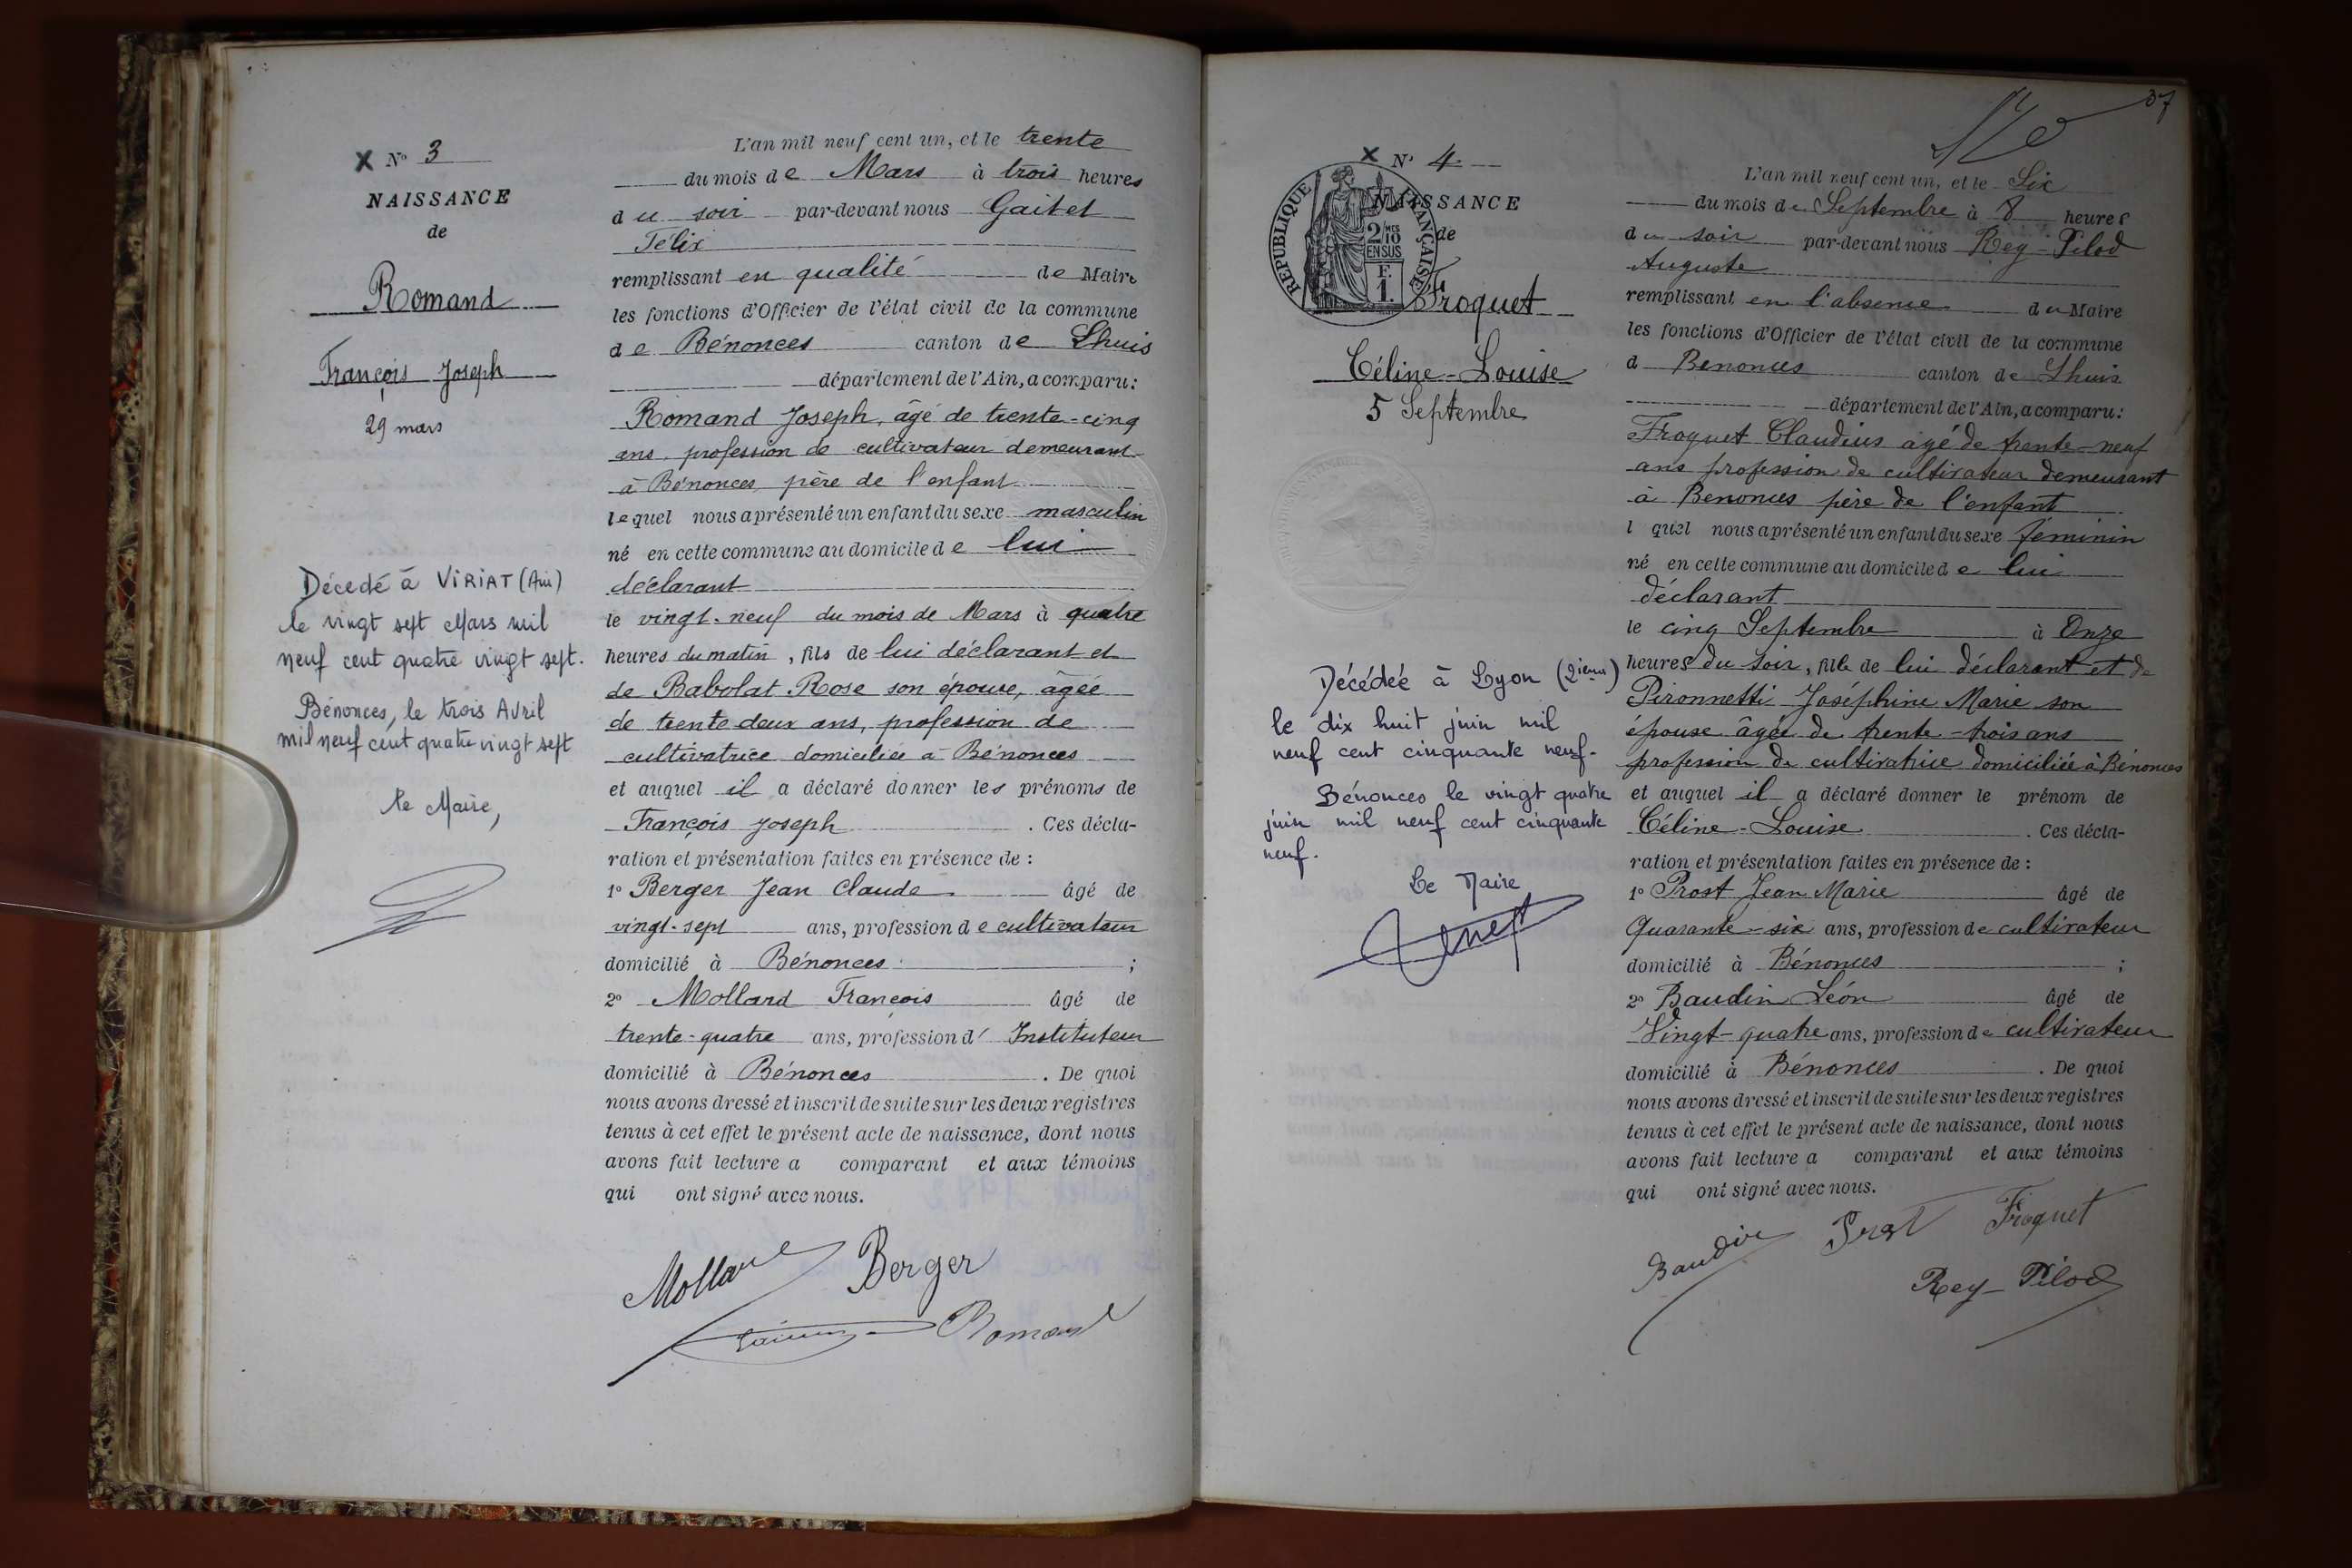 X N° 3
NAISSANCE
de
Romand
François Joseph
29 mars
Décedé à VIRIAT (Ain)
le vingt sept Mars mil
neuf cent quatre vingt sept.
Bénonces, le trois Avril
mil neuf cent quatre vingt sept
le Maire,
L'an mil neuf cent un, et le trente
du mois de Mars à trois heures
du soir par-devant nous Gaitet
Félix
remplissant en qualité de Maire
les fonctions d'Officier de l'état civil de la commune
de Bénonces canton de Lhuis
département de l'Ain, a comparu :
Romand Joseph, âgé de trente-cinq
ans, profession de cultivateur demeurant
à Bénonces, père de l'enfant
lequel nous a présenté un enfant du sexe masculin
né en cette commune au domicile de lui
déclarant
le vingt-neuf du mois de Mars à quatre
heures du matin, fils de lui déclarant et
de Babolat Rose son épouse, âgée
de trente deux ans, profession de
cultivatrice domiciliée à Bénonces
et auquel il a déclaré donner les prénoms de
François Joseph. Ces décla-
ration et présentation faites en présence de :
1° Berger Jean Claude âgé de
vingt-sept ans, profession de cultivateur
domicilié à Bénonces ;
2° Mollard François âgé de
trente-quatre ans, profession d' Instituteur
domicilié à Bénonces. De quoi
nous avons dressé et inscrit de suite sur les deux registres
tenus à cet effet le présent acte de naissance, dont nous
avons fait lecture a comparant et aux témoins
qui ont signé avec nous.
Mollard Berger
Romand
37
X N° 4
NAISSANCE
de
REPUBLIQUE FRANÇAISE
2/10 MES
EN SUS
F.
1.
Froquet
Céline-Louise
5 Septembre
Décédée à Lyon (2ième)
le dix huit juin mil
neuf cent cinquante neuf.
Bénonces le vingt quatre
juin mil neuf cent cinquante
neuf.
Le Maire
L'an mil neuf cent un, et le Six
du mois de Septembre à 8 heures
du soir par-devant nous Rey-Pilod
Auguste
remplissant en l'absence du Maire
les fonctions d'Officier de l'état civil de la commune
d Benonces canton de Lhuis
département de l'Ain, a comparu :
Froquet Claudius âgé de trente-neuf
ans profession de cultivateur demeurant
à Benonces père de l'enfant
l quel nous a présenté un enfant du sexe féminin
né en cette commune au domicile de lui
déclarant
le cinq Septembre à Onze
heures du soir, fille de lui déclarant et de
Pironnetti Joséphine Marie son
épouse âgée de trente-trois ans
profession de cultivatrice domiciliée à Bénonces
et auquel il a déclaré donner le prénom de
Céline-Louise. Ces décla-
ration et présentation faites en présence de :
1° Prost Jean Marie âgé de
Quarante-six ans, profession de cultivateur
domicilié à Bénonces ;
2° Baudin Léon âgé de
Vingt-quatre ans, profession de cultivateur
domicilié à Bénonces. De quoi
nous avons dressé et inscrit de suite sur les deux registres
tenus à cet effet le présent acte de naissance, dont nous
avons fait lecture a comparant et aux témoins
qui ont signé avec nous.
Baudin Prost Froquet
Rey-Pilod